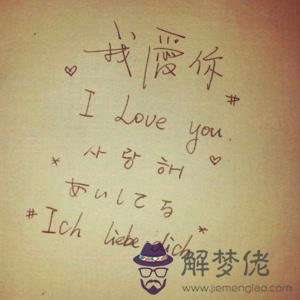 我愛你
♡ #
I Love you.
사랑해 ♡
* あいしてる
# Ich liebe dich *
解梦佬
www.jiemenglao.com